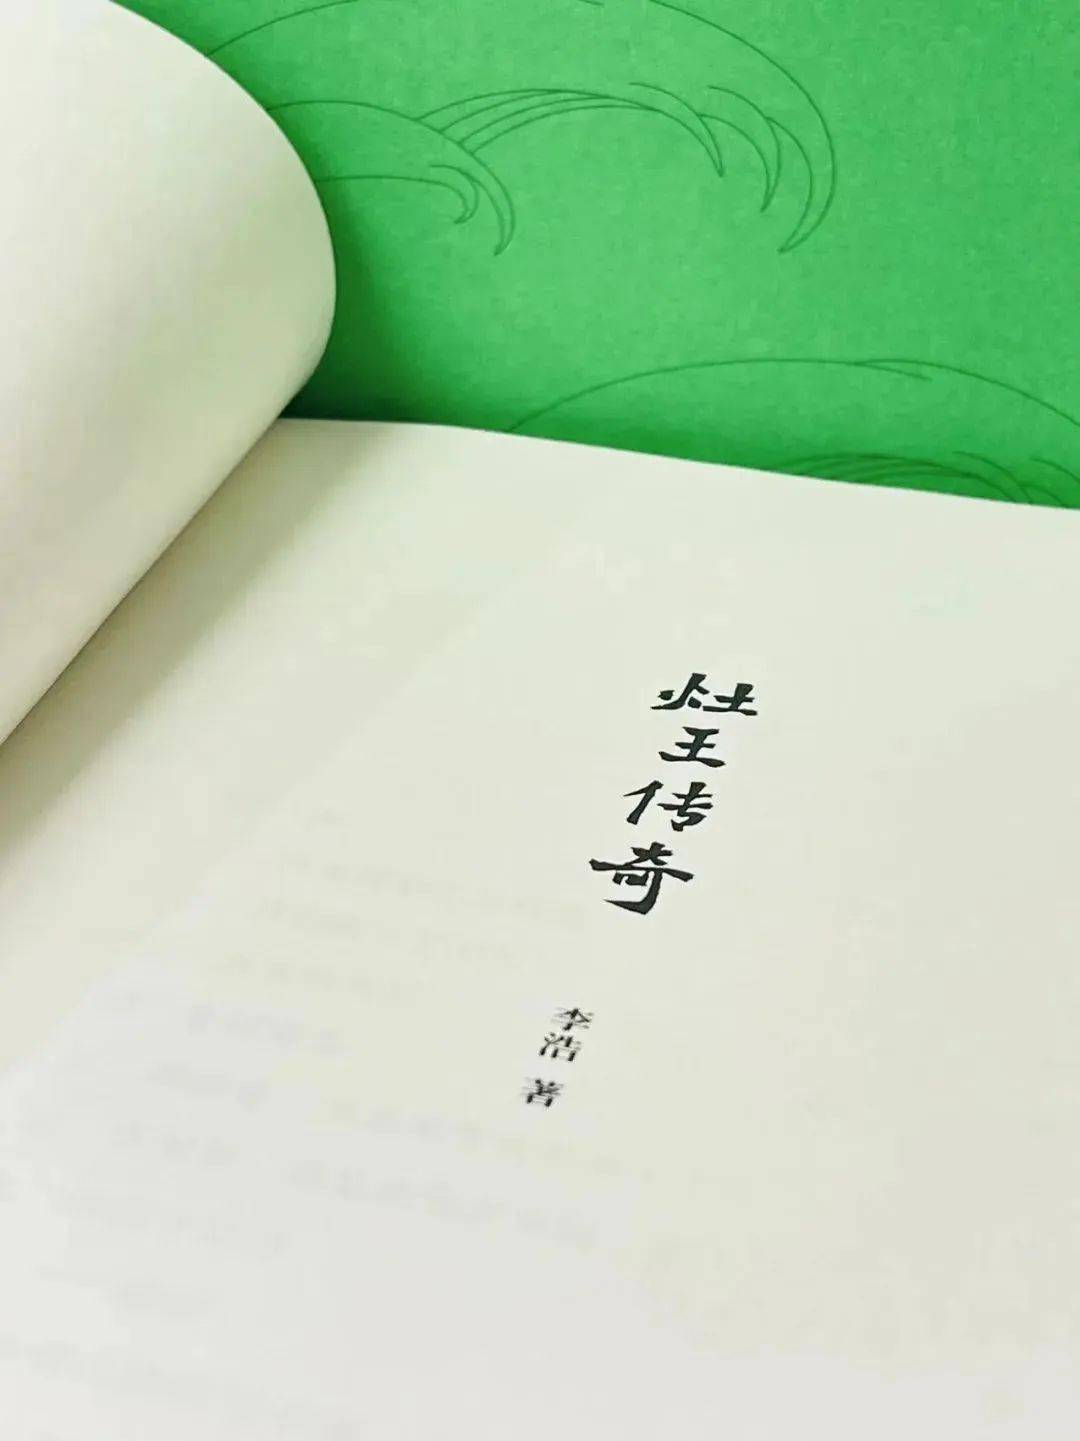 灶王传奇
李浩 著